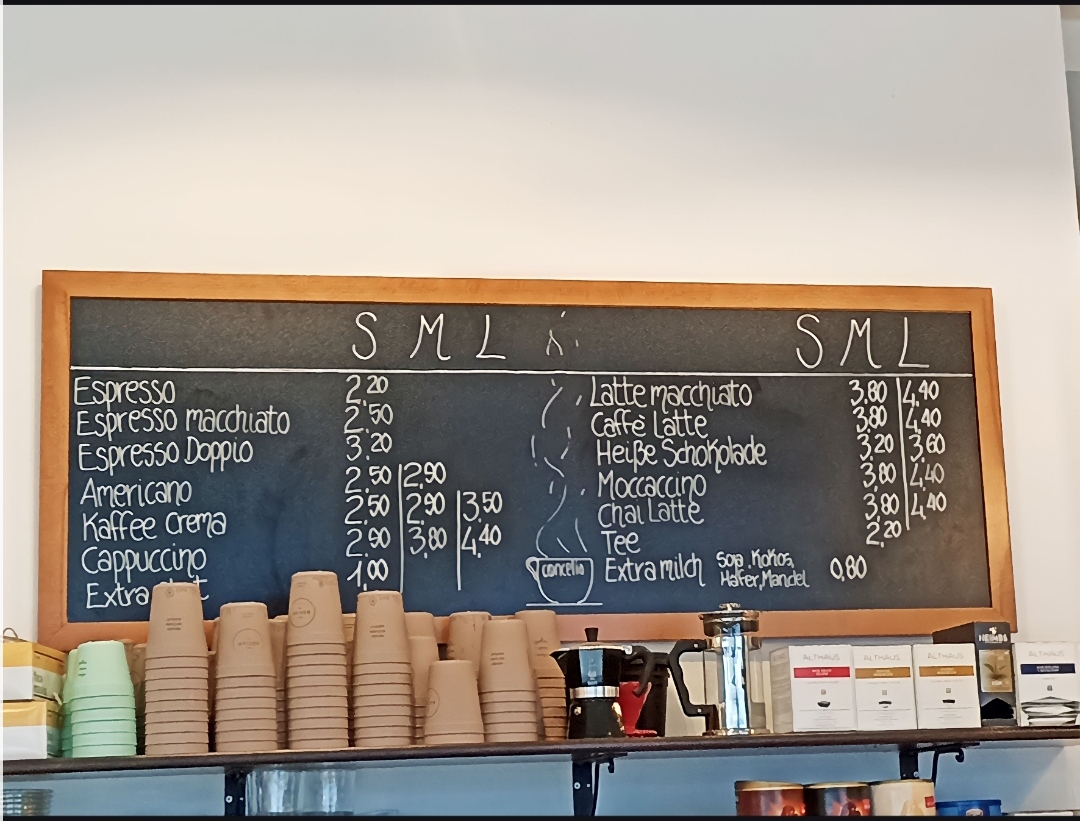 S M L
Espresso 2,20
Espresso macchiato 2,50
Espresso Doppio 3,20
Americano 2,50 2,90
Kaffee Crema 2,50 2,90 3,50
Cappuccino 2,90 3,80 4,40
Extra 1,00
concelio
S M L
Latte macchiato 3,80 4,40
Caffè Latte 3,80 4,40
Heiße Schokolade 3,20 3,60
Moccaccino 3,80 4,40
Chai Latte 3,80 4,40
Tee 2,20
Extra milch Soja, Kokos, 0,80
Hafer, Mandel
ALTHAUS
ALTHAUS
ALTHAUS